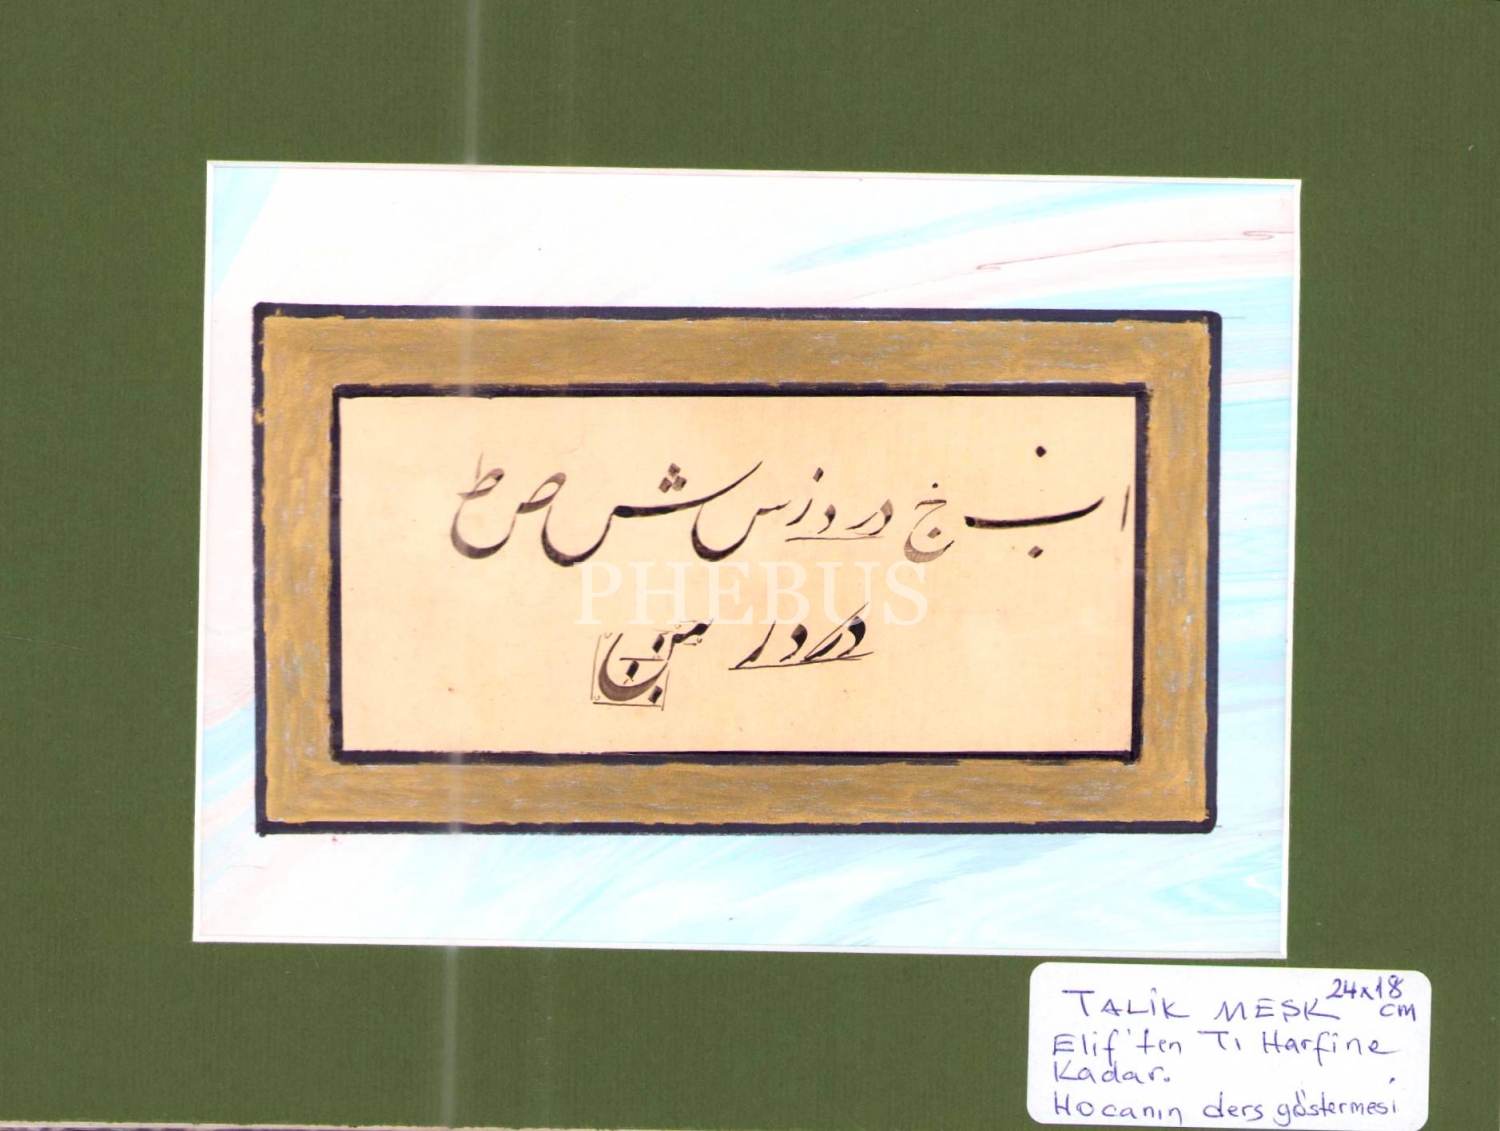 ا ب خ در د ز س ش ص ط
PHEBUS
در د ر
TALİK MEŞK 24x18 cm
Elif'ten Tı Harfine
Kadar.
Hocanın ders göstermesi